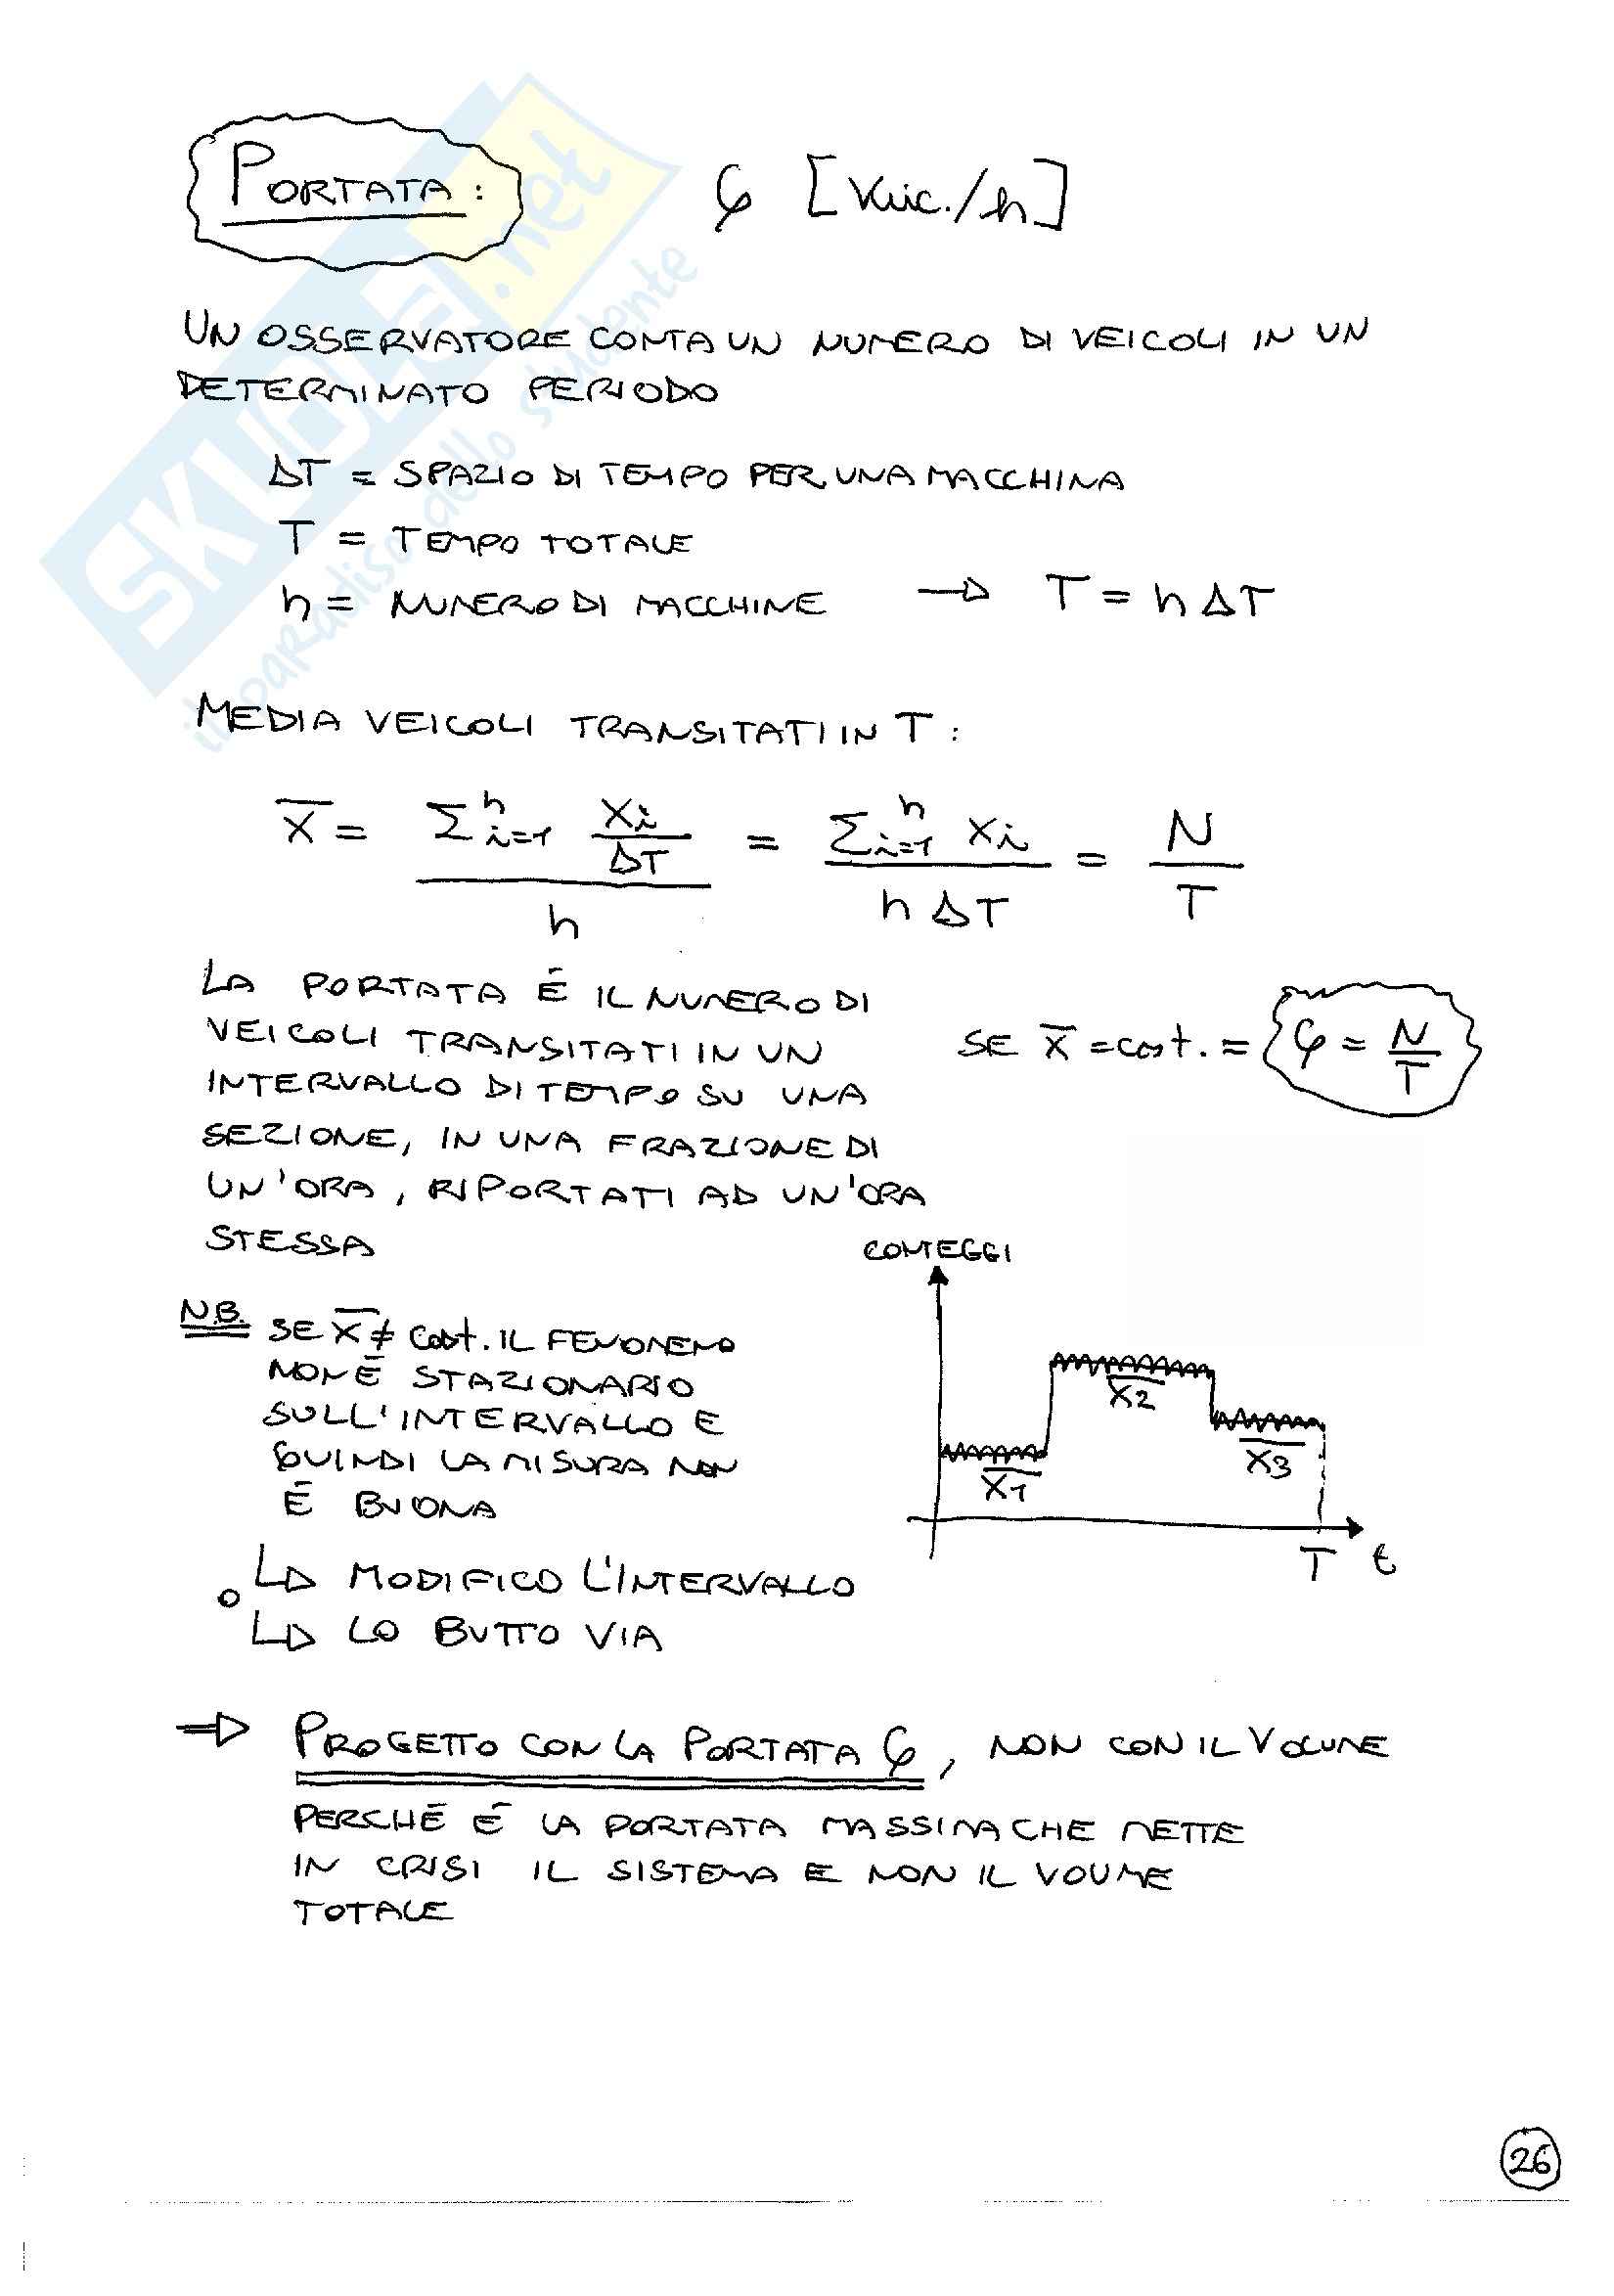 PORTATA: φ [Veic./h]
UN OSSERVATORE CONTA UN NUMERO DI VEICOLI IN UN
DETERMINATO PERIODO
ΔT = SPAZIO DI TEMPO PER UNA MACCHINA
T = TEMPO TOTALE
n = NUMERO DI MACCHINE → T = n ΔT
MEDIA VEICOLI TRANSITATI IN T:
X̄ = (Σⁿᵢ₌₁ Xi/ΔT) / n = (Σⁿᵢ₌₁ Xi) / (n ΔT) = N/T
LA PORTATA È IL NUMERO DI
VEICOLI TRANSITATI IN UN
INTERVALLO DI TEMPO SU UNA
SEZIONE, IN UNA FRAZIONE DI
UN'ORA, RIPORTATI AD UN'ORA
STESSA
SE X̄ = cost. = φ = N/T
N.B. SE X̄ ≠ cost. IL FENOMENO
NON È STAZIONARIO
SULL'INTERVALLO E
QUINDI LA MISURA NON
È BUONA
CONTEGGI
X̄2
X̄3
X̄1
T t
↳ MODIFICO L'INTERVALLO
O
↳ LO BUTTO VIA
⇒ PROGETTO CON LA PORTATA φ, NON CON IL VOLUME
PERCHÉ È LA PORTATA MASSIMA CHE METTE
IN CRISI IL SISTEMA E NON IL VOUME
TOTALE
26
SKUOLA.net
il paradiso dello studente